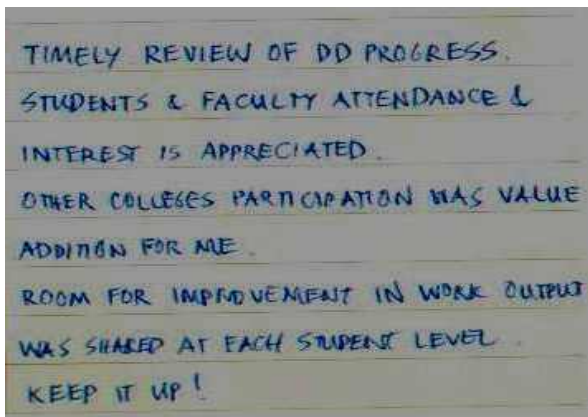 TIMELY REVIEW OF DD PROGRESS.
STUDENTS & FACULTY ATTENDANCE &
INTEREST IS APPRECIATED.
OTHER COLLEGES PARTICIPATION WAS VALUE
ADDITION FOR ME.
ROOM FOR IMPROVEMENT IN WORK OUTPUT
WAS SHARED AT EACH STUDENT LEVEL.
KEEP IT UP!